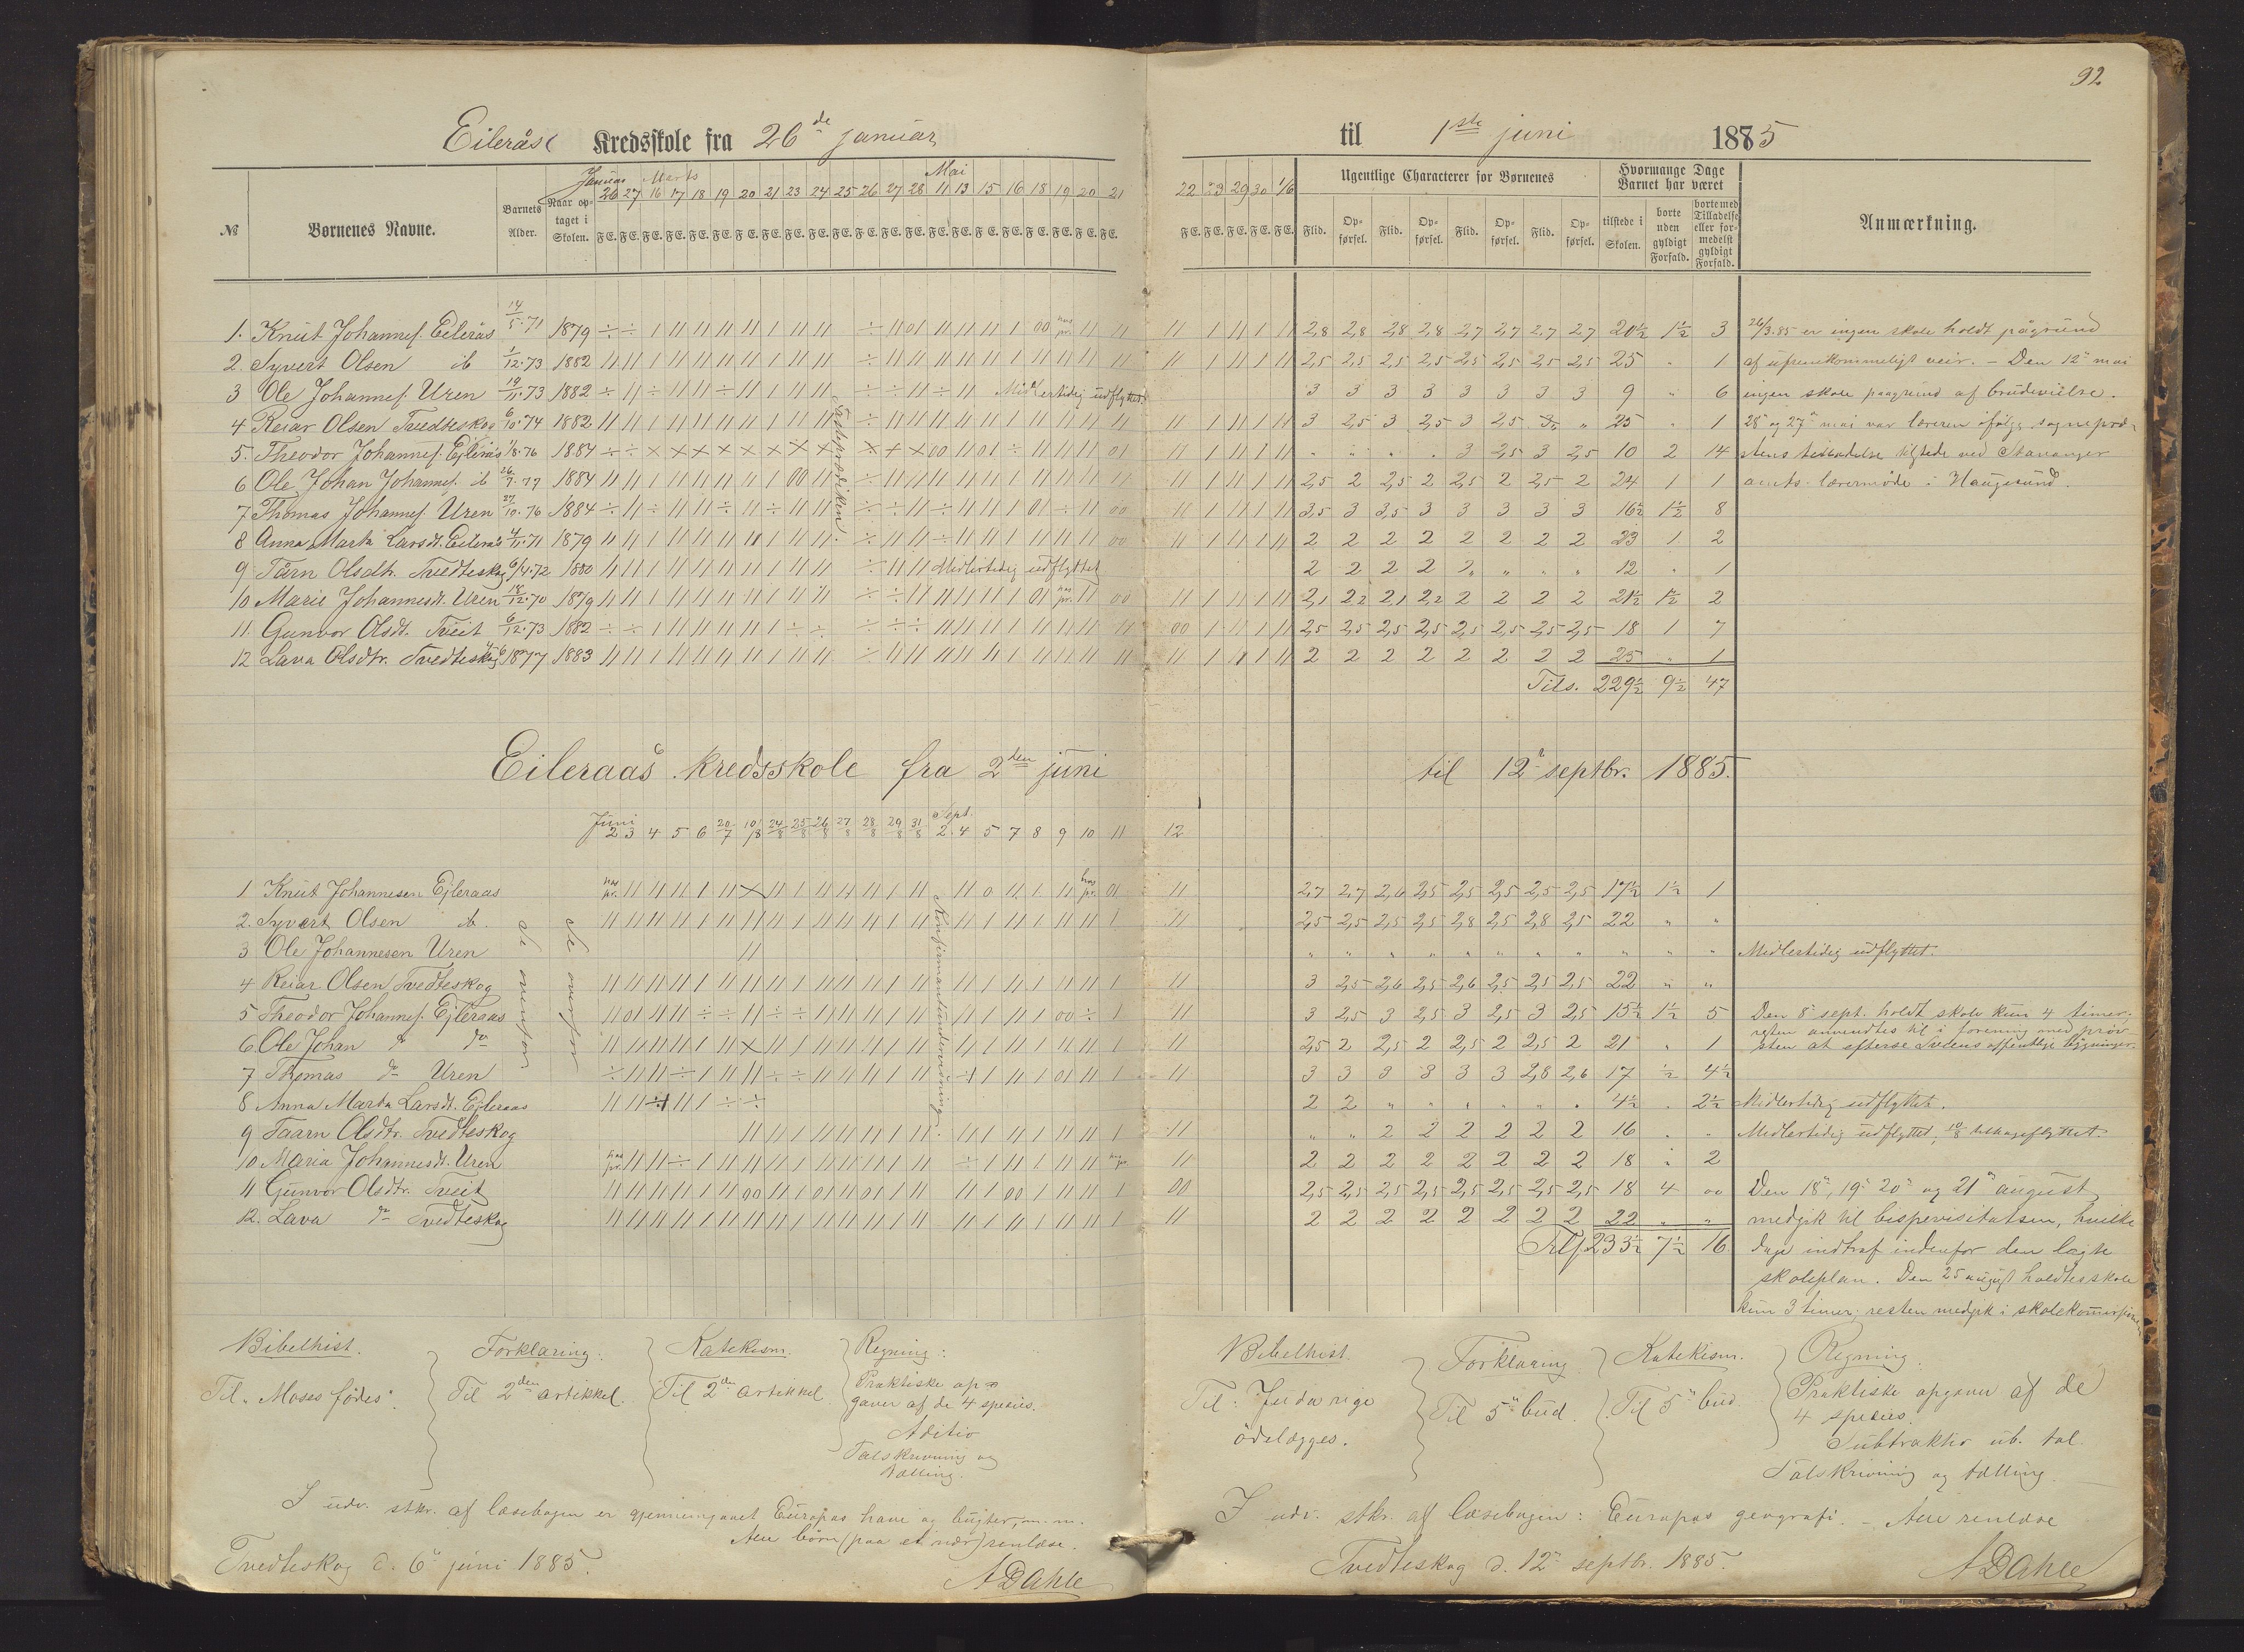 92
Eilerås Kredsskole fra 26de januar til 1ste juni 1885
№ Børnenes Navne. Barnets Alder. Naar optaget i Skolen. Ugentlige Characterer for Børnenes Hvormange Dage Barnet har været Anmærkning.
Januar Marts Mai
26 27 16 17 18 19 20 21 23 24 25 26 27 28 11 13 15 16 18 19 20 21 22 23 29 30 1/6
F.E. F.E. F.E. F.E. F.E. F.E. F.E. F.E. F.E. F.E. F.E. F.E. F.E. F.E. F.E. F.E. F.E. F.E. F.E. F.E. F.E. F.E. F.E. F.E. F.E. F.E. F.E.
Flid. Opførsel. Flid. Opførsel. Flid. Opførsel. Flid. Opførsel. tilstede i Skolen. borte uden gyldigt Forfald. borte med Tilladelse eller formedelst gyldigt Forfald.
1. Knut Johannes. Eilerås 14/5.71 1879 2,8 2,8 2,8 2,8 2,7 2,7 2,7 2,7 20½ 1½ 3 26/3.85 er ingen skole holdt pågrund
2. Syvert Olsen ib 1/12.73 1882 2,5 2,5 2,5 2,5 2,5 2,5 2,5 2,5 25 " 1 af ufremkommeligt veir. – Den 12te mai
3 Ole Johannes. Uren 19/11.73 1882 Midlertidig udflyttet 3 3 3 3 3 3 3 3 9 " 6 ingen skole paagrund af brudevielse.
4 Reiar Olsen Tvedteskog 6/10.74 1882 3 2,5 3 2,5 3 2,5 3 " 25 " 1 28de og 27de mai var læreren ifølge sognepræ-
5. Theodor Johannes. Ejlerås 1/8.76 1884 " " " " 3 2,5 3 2,5 10 2 14 stens tilladelse tilstede ved Stavanger
6 Ole Johan Johannes. ib 26/7.77 1884 2,5 2 2,5 2 2,5 2 2,5 2 24 1 1 amts lærermøde i Haugesund.
7 Thomas Johannes. Uren 27/10.76 1884 3,5 3 3,5 3 3 3 3 3 16½ 1½ 8
8 Anna Marta Larsdt. Eilerås 4/11.71 1879 2 2 2 2 2 2 2 2 23 1 2
9 Tårn Olsdtr. Tvedteskog 6/4.72 1880 Midlertidig udflyttet 2 2 2 2 2 " " " 12 " 1
10 Marie Johannesdt. Uren 18/12.70 1879 2,1 2,2 2,1 2,2 2 2 2 2 21½ 1½ 2
11. Gunvor Olsdt. Tveit 6/12.73 1882 2,5 2,5 2,5 2,5 2,5 2,5 2,5 2,5 18 1 7
12 Lava Olsdtr. Tvedteskog 1877 1883 2 2 2 2 2 2 2 2 25 " 1
Tils. 229½ 9½ 47
Eileraas kredsskole fra 2den juni til 12te septbr. 1885.
Juni Sept.
2 3 4 5 6 20/7 10/8 24/8 25/8 26/8 27/8 28/8 29/8 31/8 2 4 5 7 8 9 10 11 12
Konfirmantundervisning.
se ovenfor
se ovenfor
1 Knut Johannesen Ejleraas 2,7 2,7 2,6 2,5 2,5 2,5 2,5 2,5 17½ 1½ 1
2. Syvert Olsen ib. 2,5 2,5 2,5 2,5 2,8 2,5 2,8 2,5 22 " "
3 Ole Johannesen Uren " " " " " " " " " " " Midlertidig udflyttet.
4 Reiar Olsen Tvedteskog 3 2,5 2,6 2,5 2,6 2,5 2,5 2,5 22 " "
5 Theodor Johannes. Ejleraas 3 2,5 3 2,5 3 2,5 3 2,5 15½ 1½ 5 Den 8de sept. holdt skole kun 4 timer;
resten anvendtes til i forening med præ-
6 Ole Johan do do 2,5 2 2,5 2 2,5 2 2,5 2 21 " 1 sten at efterse Sveens offentlige bygninger.
7 Thomas do Uren 3 3 3 3 3 3 2,8 2,6 17 ½ 4½
8 Anna Marta Larsdt. Ejleraas 2 2 " " " " " " 4½ " 2½ Midlertidig udflyttet.
9 Taarn Olsdtr. Tvedteskog " " 2 2 2 2 2 2 16 " " Midlertidig udflyttet, 10/8 tilbageflyttet.
10 Maria Johannesdt. Uren 2 2 2 2 2 2 2 2 18 " 2
11 Gunvor Olsdtr. Tveit 2,5 2,5 2,5 2,5 2,5 2,5 2,5 2,5 18 4 00 Den 18de, 19de 20de og 21de august
12. Lava do Tvedteskog 2 2 2 2 2 2 2 2 22 " " medgik til bispevisitatsen, hvilke
Tils. 233½ 7½ 16 dage indtraf indenfor den lagte
skoleplan. Den 25 august holdtes skole
kun 3 timer; resten medgik i skolekommission
Bibelhist. Forklaring. Katekism. Regning:
Til „Moses fødes". Til 2den artikkel. Til 2den artikkel. Praktiske opgaver af de 4 species.
Aditio
Talskrivning og
tælling.
I udv. stkr. af læsebogen er gjennemgaaet Europas have og bugter, m. m.
Alle børn (paa et nær) renlæse.
Tvedteskog d. 6te juni 1885.
A Dahle
Bibelhist. Forklaring Katekism. Regning.
Til: Juda rige ødelægges. Til 5te bud. Til 5te bud Praktiske opgaver af de
4 species.
Subtraktio ub. tal
Talskrivning og tælling.
I udv. stkr. af læsebogen: Europas geografi. – Alle renlæse
Tvedteskog d. 12te septbr. 1885.
A Dahle